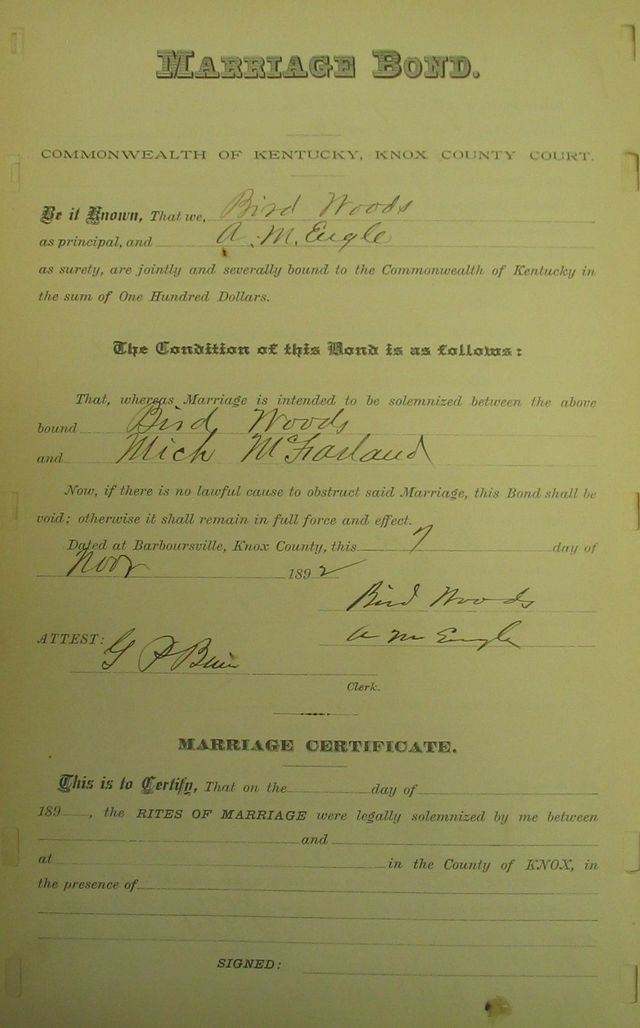 MARRIAGE BOND.
COMMONWEALTH OF KENTUCKY, KNOX COUNTY COURT.
Be it Known, That we, Bird Woods
as principal, and A. M. Engle
as surety, are jointly and severally bound to the Commonwealth of Kentucky in
the sum of One Hundred Dollars.
The Condition of this Bond is as follows:
That, whereas Marriage is intended to be solemnized between the above
bound Bird Woods
and Mich McFarland
Now, if there is no lawful cause to obstruct said Marriage, this Bond shall be
void; otherwise it shall remain in full force and effect.
Dated at Barboursville, Knox County, this 7 day of
Nov 1892
Bird Woods
ATTEST: A M Engle
G P
Clerk.
MARRIAGE CERTIFICATE.
This is to Certify, That on the day of
189 , the RITES OF MARRIAGE were legally solemnized by me between
and
at in the County of KNOX, in
the presence of
SIGNED: